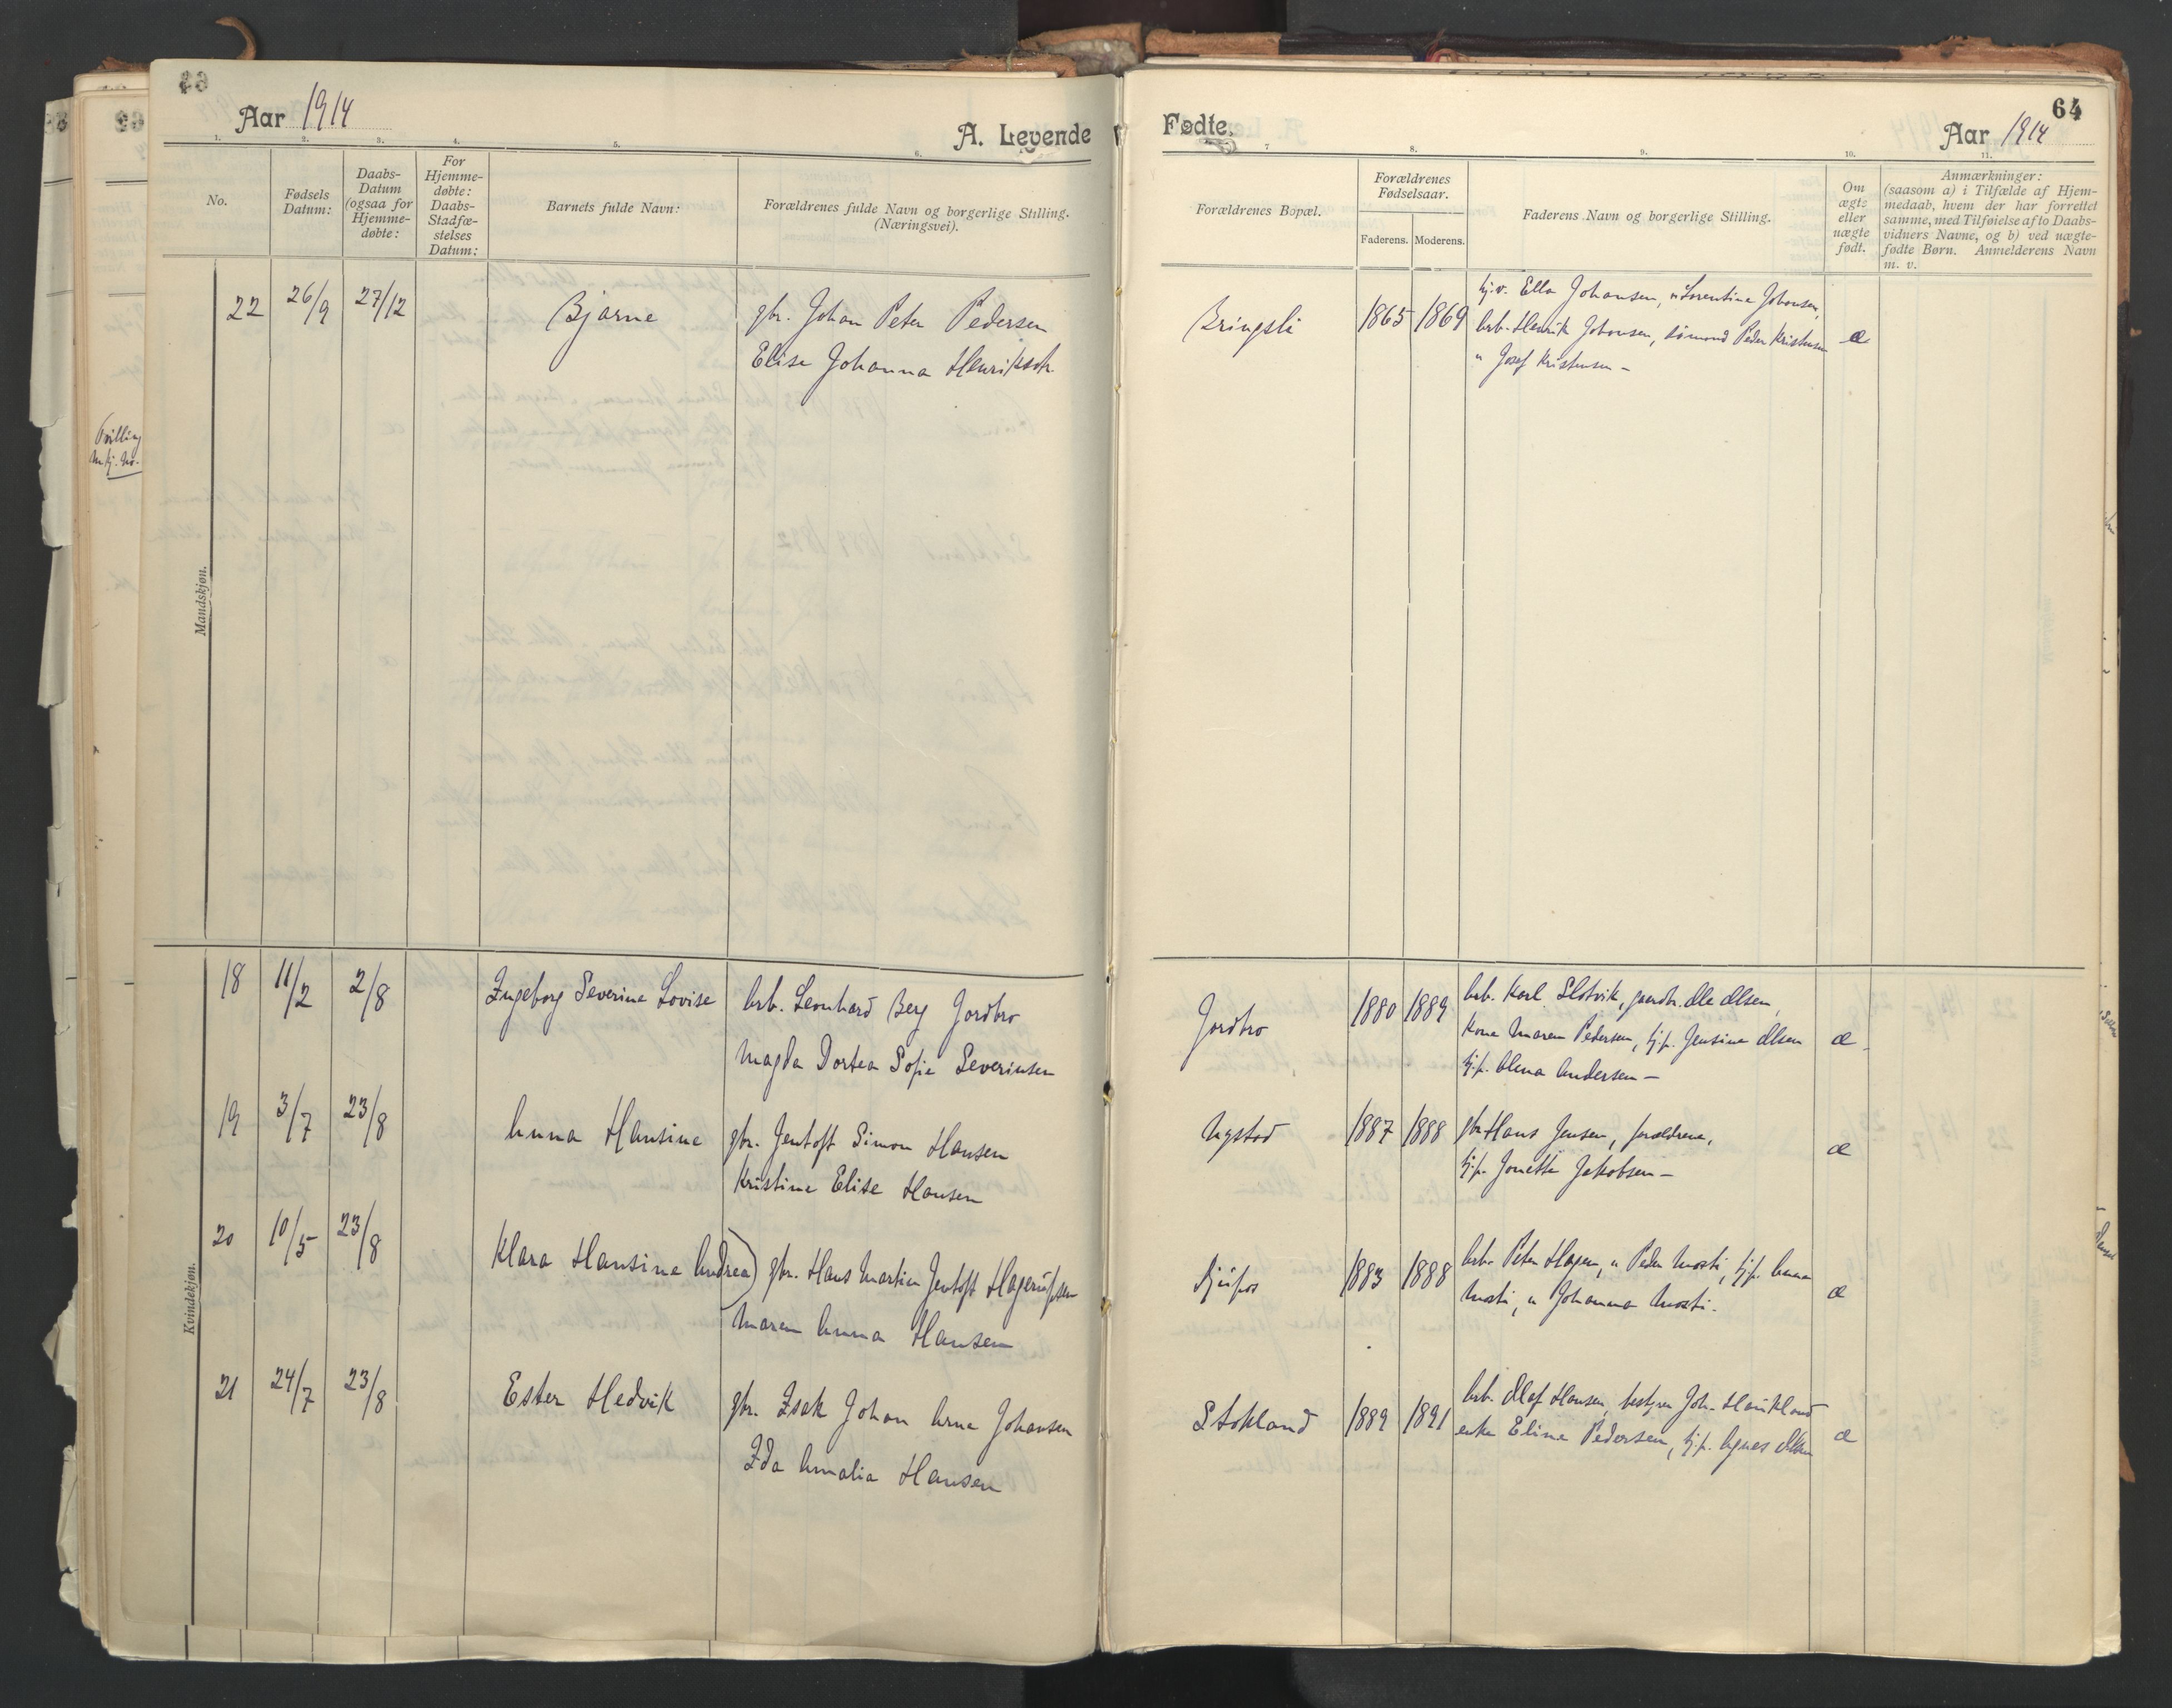 Aar 1914
A. Levende
Fødte.
64
Aar 1914
1. 2. 3. 4. 5. 6.
7 8. 9. 10. 11.
No.
Fødsels
Datum:
Daabs-
Datum
(ogsaa for
Hjemme-
døbte:
For
Hjemme-
døbte:
Daabs-
Stadfæ-
stelses
Datum:
Barnets fulde Navn:
Forældrenes fulde Navn og borgerlige Stilling.
(Næringsvei).
Forældrenes Bopæl.
Forældrenes
Fødselsaar.
Faderens. Moderens.
Faderens Navn og borgerlige Stilling.
Om
ægte
eller
uægte
født.
Anmærkninger:
(saasom a) i Tilfælde af Hjem-
medaab, hvem der har forrettet
samme, med Tilføielse af to Daabs-
vidners Navne, og b) ved uægte-
fødte Børn. Anmelderens Navn
m. v.
Mandskjøn.
22 26/9 27/12 Bjarne gbr. Johan Peter Pedersen
Elise Johanna Henriksdtr.
Bringsli 1865 1869 tj.v. Ella Johansen, " Lorentine Johansen,
brb. Henrik Johansen, sømand Peder Kristensen
" Josef Kristensen –
æ
Kvindekjøn.
18 11/2 2/8 Ingeborg Severine Lovise brb. Leonhard Berg Jordbro
Magda Dortea Sofie Severinsen
Jordbro 1880 1889 brb. Karl Slotvik, gaardbr. Ole Olsen,
Kona Maren Pedersen, tj.p. Jensine Olsen
tj.p. Olena Andersen –
æ
19 3/7 23/8 Anna Hansine gbr. Jentoft Simon Hansen
Kristine Elise Hansen
Nystad 1887 1888 gbr Hans Jensen, forældrene,
tj.p. Jonette Jakobsen –
æ
20 10/5 23/8 Klara Hansine Andrea) gbr. Hans Martin Jentoft Hagerupsen
Maren Anna Hansen
Djupos 1883 1888 brb. Peter Hagen, " Peder Mosti, tj.p. Anna
Mosti, " Johanna Mosti.
æ
21 24/7 23/8 Ester Hedvik gbr. Isak Johan Arne Johansen
Ida Amalia Hansen
Stokland 1889 1891 brb. Olaf Hansen, bestyrer Joh. Haukland
enke Eline Pedersen, tj.p. Agnes Olsen
æ